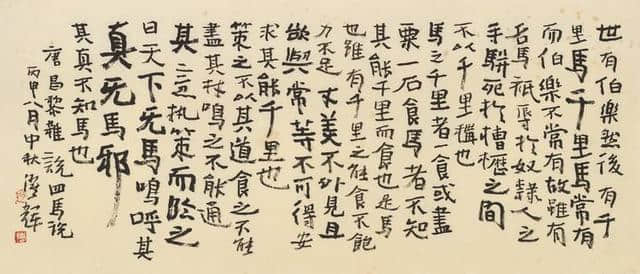 世有伯樂然後有千
里馬千里馬常有
而伯樂不常有故雖有
名馬祇辱於奴隸人之
手駢死於槽櫪之間
不以千里稱也
馬之千里者一食或盡
粟一石食馬者不知
其能千里而食也是馬
也雖有千里之能食不飽
力不足才美不外見且
欲與常等不可得安
求其能千里也
策之不以其道食之不能
盡其材鳴之不能通
其意執策而臨之
曰天下无馬鳴呼其
真无馬邪
其真不知馬也
唐昌黎雜說四馬說
丙申八月中秋